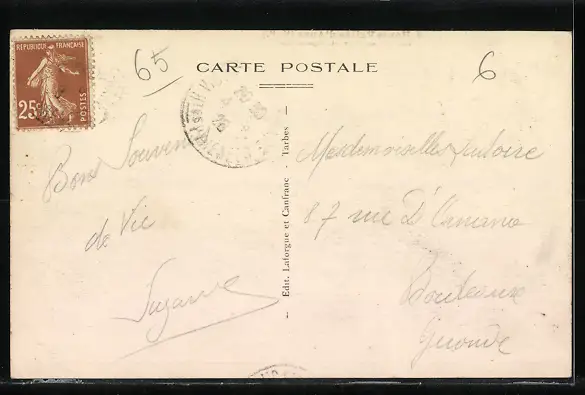 65
6
REPUBLIQUE FRANÇAISE
25c
POSTES
CARTE POSTALE
Bons Souvenirs
de Vic
Suzanne
Edit. Laforgue et Canfranc - Tarbes
Mesdemoiselles
87 rue D'
Bordeaux
Gironde